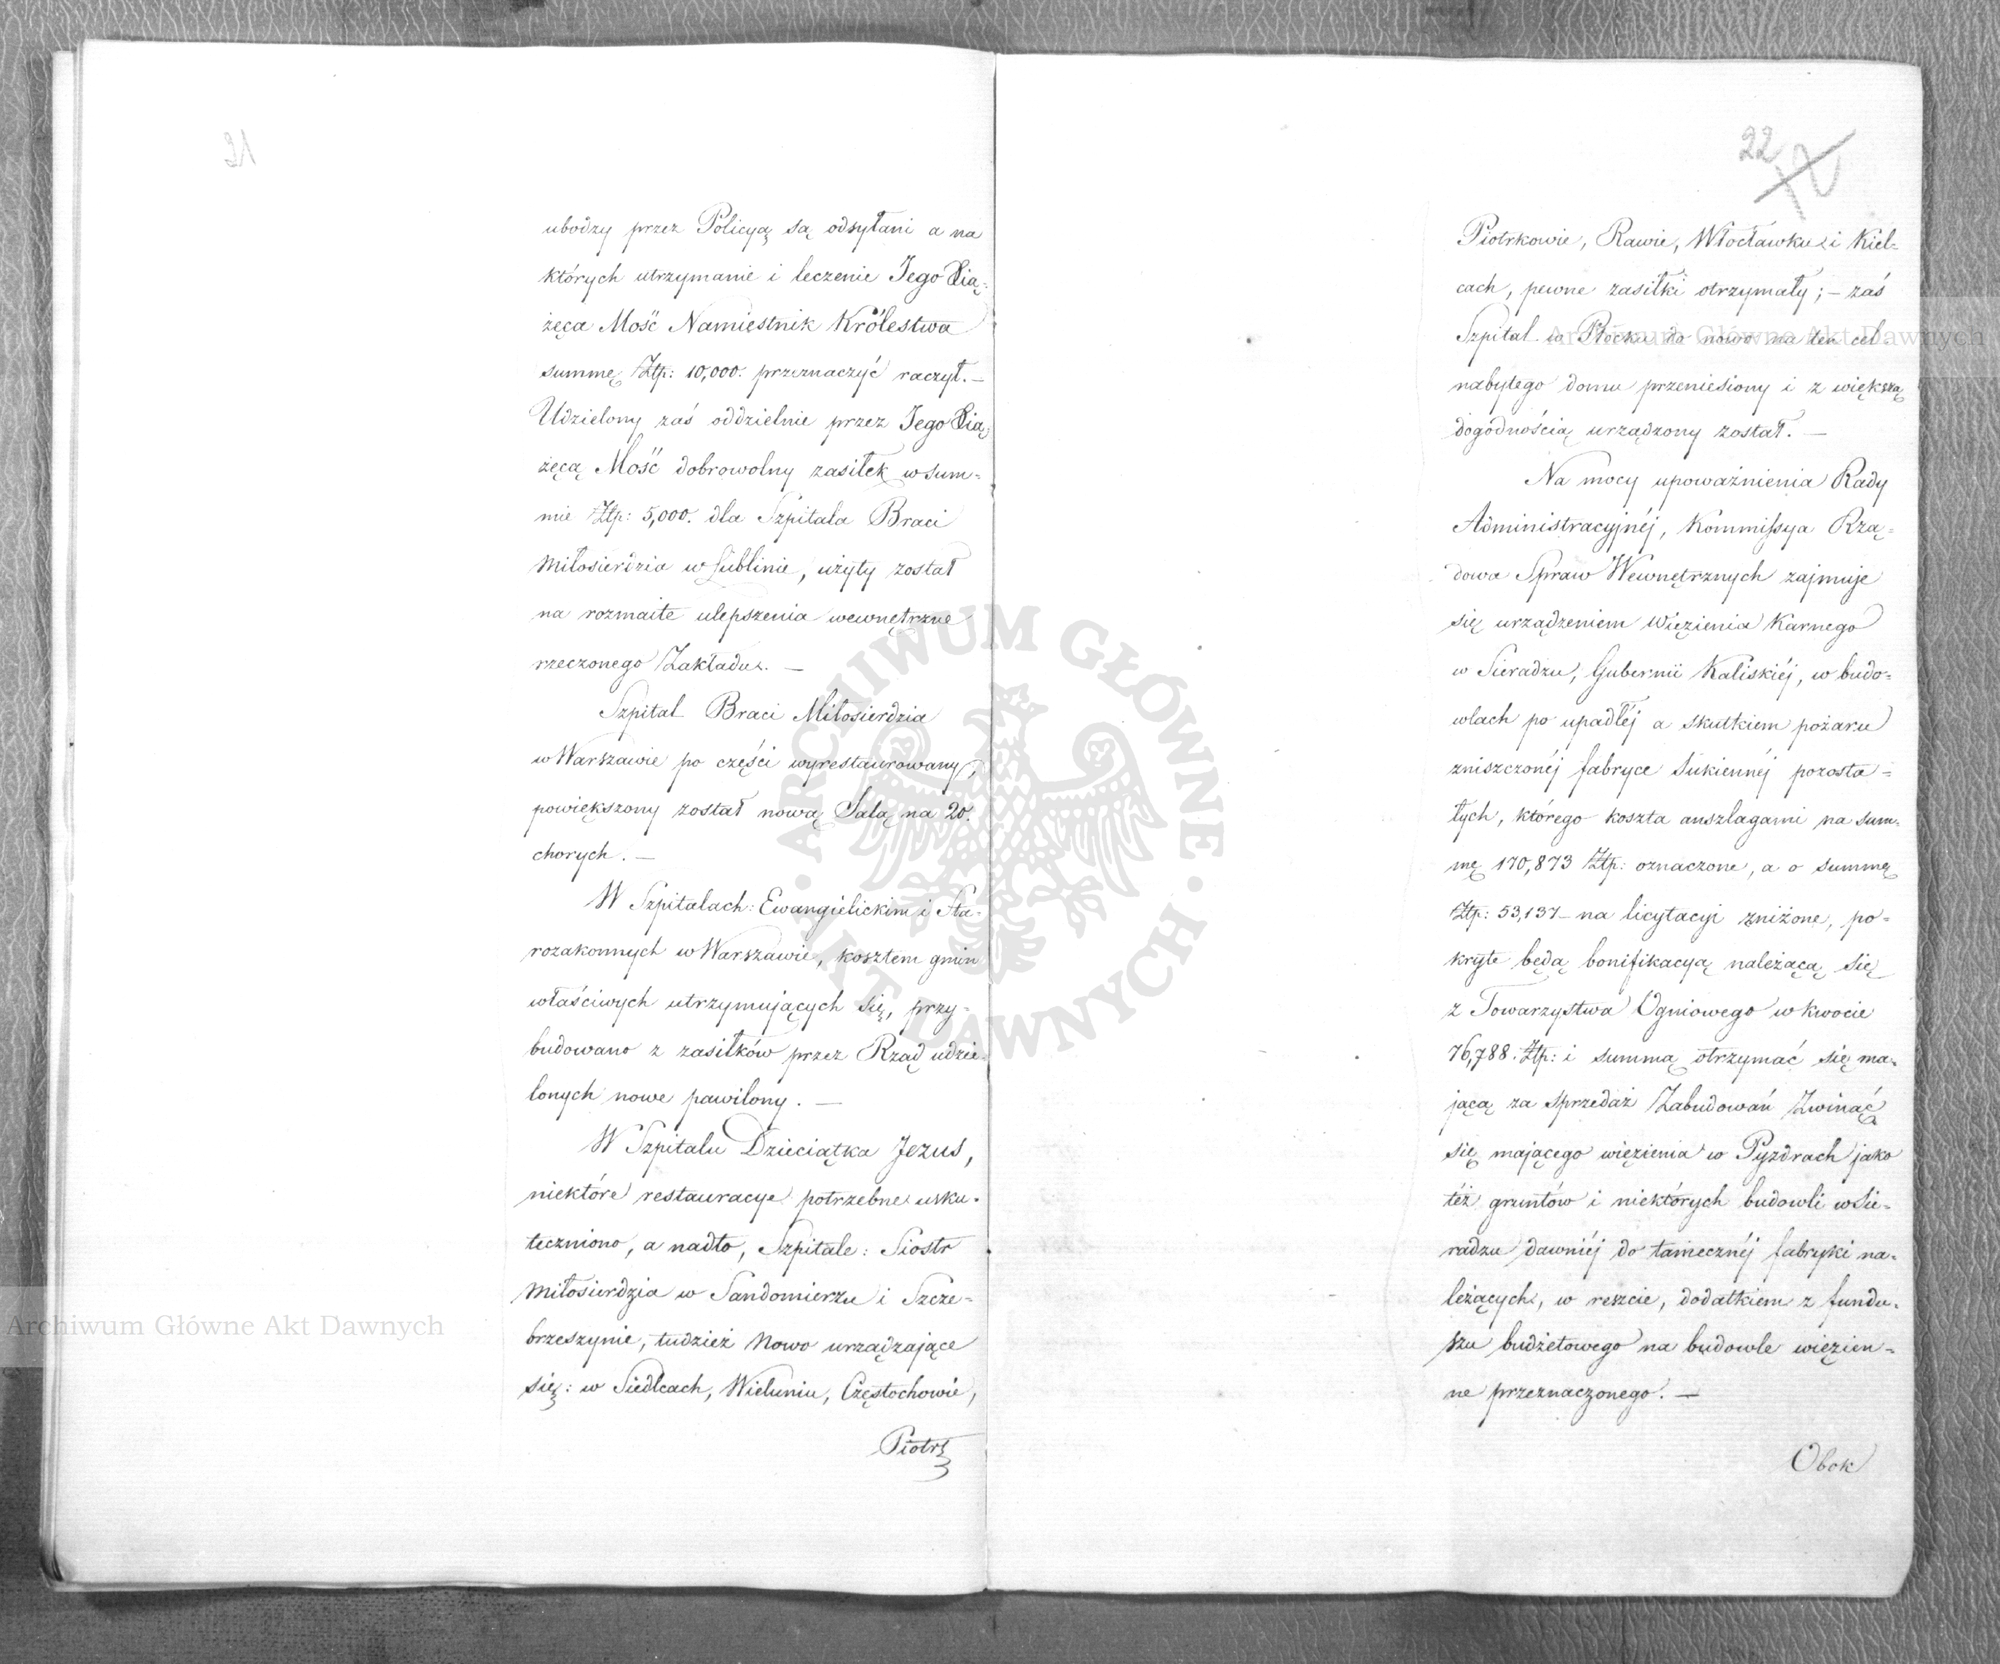 21
ubodzy przez Policyą są odsyłani a na
których utrzymanie i leczenie Jego Xią=
żęca Mość Namiestnik Królestwa
summę Złp: 10,000. przeznaczyć raczył. —
Udzielony zaś oddzielnie przez Jego Xią=
żęcą Mość dobrowolny zasiłek w sum=
mie Złp: 5,000. dla Szpitala Braci
Miłosierdzia w Lublinie, użyty został
na rozmaite ulepszenia wewnętrzne
rzeczonego Zakładu. —
Szpital Braci Miłosierdzia
w Warszawie po części wyrestaurowany,
powiększony został nową Salą na 20.
chorych. —
W Szpitalach: Ewangielickim i Sta=
rozakonnych w Warszawie, kosztem gmin
właściwych utrzymujących się, przy=
budowano z zasiłków przez Rząd udzie=
lonych nowe pawilony. —
W Szpitalu Dzieciątka Jezus,
niektóre restauracye potrzebne usku=
teczniono, a nadto, Szpitale: Siostr
Miłosierdzia w Sandomierzu i Szcze=
brzeszynie, tudzież Nowo urządzające
się: w Siedlcach, Wieluniu, Częstochowie,
Piotrk
22
12
Piotrkowie, Rawie, Włocławku i Kiel=
cach, pewne zasiłki otrzymały; — zaś
Szpital w Płocku do nowo na ten cel
nabytego domu przeniesiony i z większą
dogodnością urządzony został. —
Na mocy upoważnienia Rady
Administracyjnéj, Kommissya Rzą=
dowa Spraw Wewnętrznych zajmuje
się urządzeniem Więzienia Karnego
w Sieradzu, Gubernii Kaliskiéj, w budo=
wlach po upadłéj a skutkiem pożaru
zniszczonéj fabryce Sukiennéj pozosta=
łych, którego koszta anszlagami na sum=
mę 170,873 Złp: oznaczone, a o summę
Złp: 53,137 — na licytacyi zniżone, po=
kryte będą bonifikacyą należącą się
z Towarzystwa Ogniowego w kwocie
76,788. Złp: i summą otrzymać się ma=
jącą za sprzedaż Zabudowań Zwinąć
się mającego więzienia w Pyzdrach jako
téż gruntów i niektórych budowli w Sie=
radzu dawniéj do tamecznéj fabryki na=
leżących, w reszcie, dodatkiem z fundu=
szu budżetowego na budowle więzien=
ne przeznaczonego. —
Obok
Archiwum Główne Akt Dawnych
Archiwum Główne Akt Dawnych
ARCHIWUM GŁÓWNE
AKT DAWNYCH